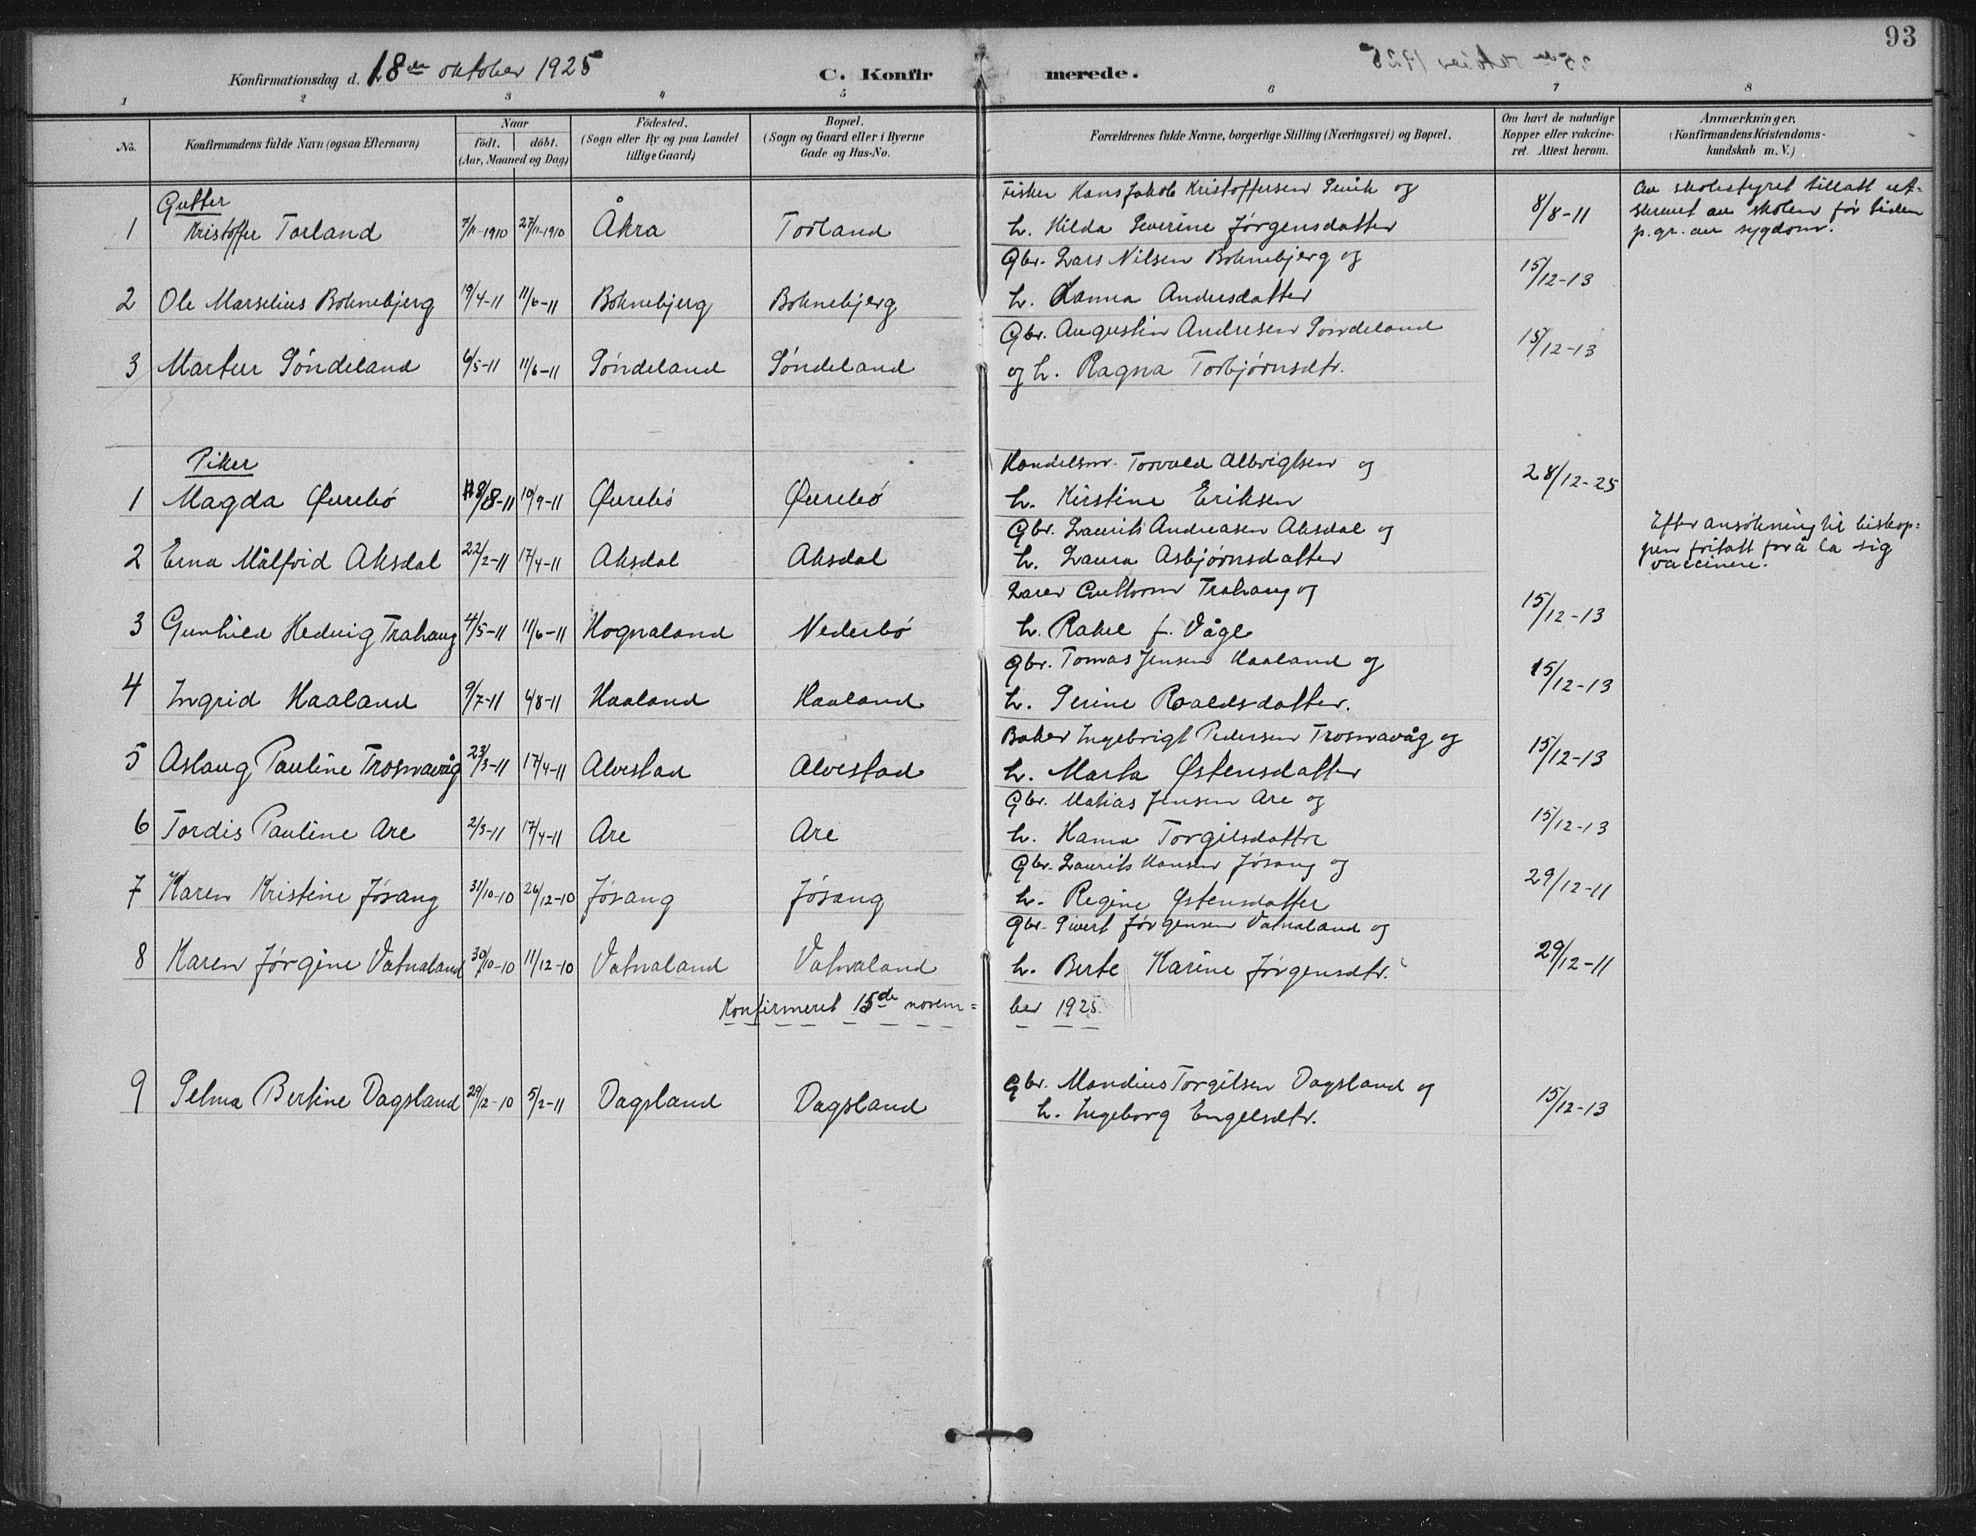 93
Konfirmationsdag d. 18de oktober 1925
C. Konfirmerede.
1 2 3 4 5 6 7 8
No.
Konfirmandens fulde Navn (ogsaa Efternavn)
Naar
födt. döbt.
(Aar, Maaned og Dag)
Födested.
(Sogn eller By og paa Landet
tillige Gaard)
Bopæl.
(Sogn og Gaard eller i Byerne
Gade og Hus-No.
Forældrenes fulde Navne, borgerlige Stilling (Næringsvei) og Bopæl.
Om havt de naturlige
Kopper eller vakcine-
ret. Attest herom.
Anmærkninger.
(Konfirmandens Kristendoms-
kundskab m. V.)
Gutter
1 Kristoffer Torland 7/11-1910 27/11-1910 Åkra Torland
Fisker Hans Jakob Kristoffersen og
h. Hilda Severine Jørgensdatter 8/8-11
Av skolestyret tillatt ut-
skrevet av skolen før tiden
p.gr. av sygdom.
2 Ole Marselius Boknebjerg 19/4-11 11/6-11 Boknebjerg Boknebjerg
Gbr. Lars Nilsen Boknebjerg og
h. Hanna Andersdatter 15/12-13
3 Marten Søndeland 6/5-11 11/6-11 Søndeland Søndeland
Gbr. Augustin Andresen Søndeland
og h. Ragna Torbjørnsdtr. 15/12-13
Piker
1 Magda Øvrebø 8/8-11 10/9-11 Øvrebø Øvrebø
Handelsm. Torvald Albrigtsen og
h. Kirstine Eriksen 28/12-25
2 Erna Målfrid Aksdal 22/2-11 17/4-11 Aksdal Aksdal
Gbr. Laurits Andreasen Aksdal og
h. Laura Asbjørnsdatter
Efter ansøkning til biskop-
pen fritatt for å la sig
vaccinere.
3 Gunhild Hedvig Trahaug 4/5-11 11/6-11 Hognaland Nederbø
Lærer Guttorm Trahaug og
h. Rakel f. Våge 15/12-13
4 Ingrid Haaland 9/7-11 6/8-11 Haaland Haaland
Gbr. Tomas Jensen Haaland og
h. Serine Roaldsdatter. 15/12-13
5 Aslaug Pauline Trosnavåg 23/3-11 17/4-11 Alvestad Alvestad
Baker Ingebrigt Pedersen Trosnavåg og
h. Marta Østensdatter 15/12-13
6 Tordis Pauline Are 2/3-11 17/4-11 Are Are
Gbr. Matias Jensen Are og
h. Hanna Torgilsdattre 15/12-13
7 Karen Kristine Jøsang 31/10-10 26/12-10 Jøsang Jøsang
Gbr. Laurits Hansen Jøsang og
h. Regine Østensdatter 29/12-11
8 Karen Jørgine Vatnaland 30/10-10 11/12-10 Vatnaland Vatnaland
Gbr. Sivert Jørgensen Vatnaland og
h. Berte Karine Jørgensdtr. 29/12-11
Konfirmeret 15de novem=
ber 1925.
9 Selma Bertine Dagsland 29/12-10 5/2-11 Dagsland Dagsland
Gbr. Mandius Torgilsen Dagsland og
h. Ingeborg Engelsdtr. 15/12-13